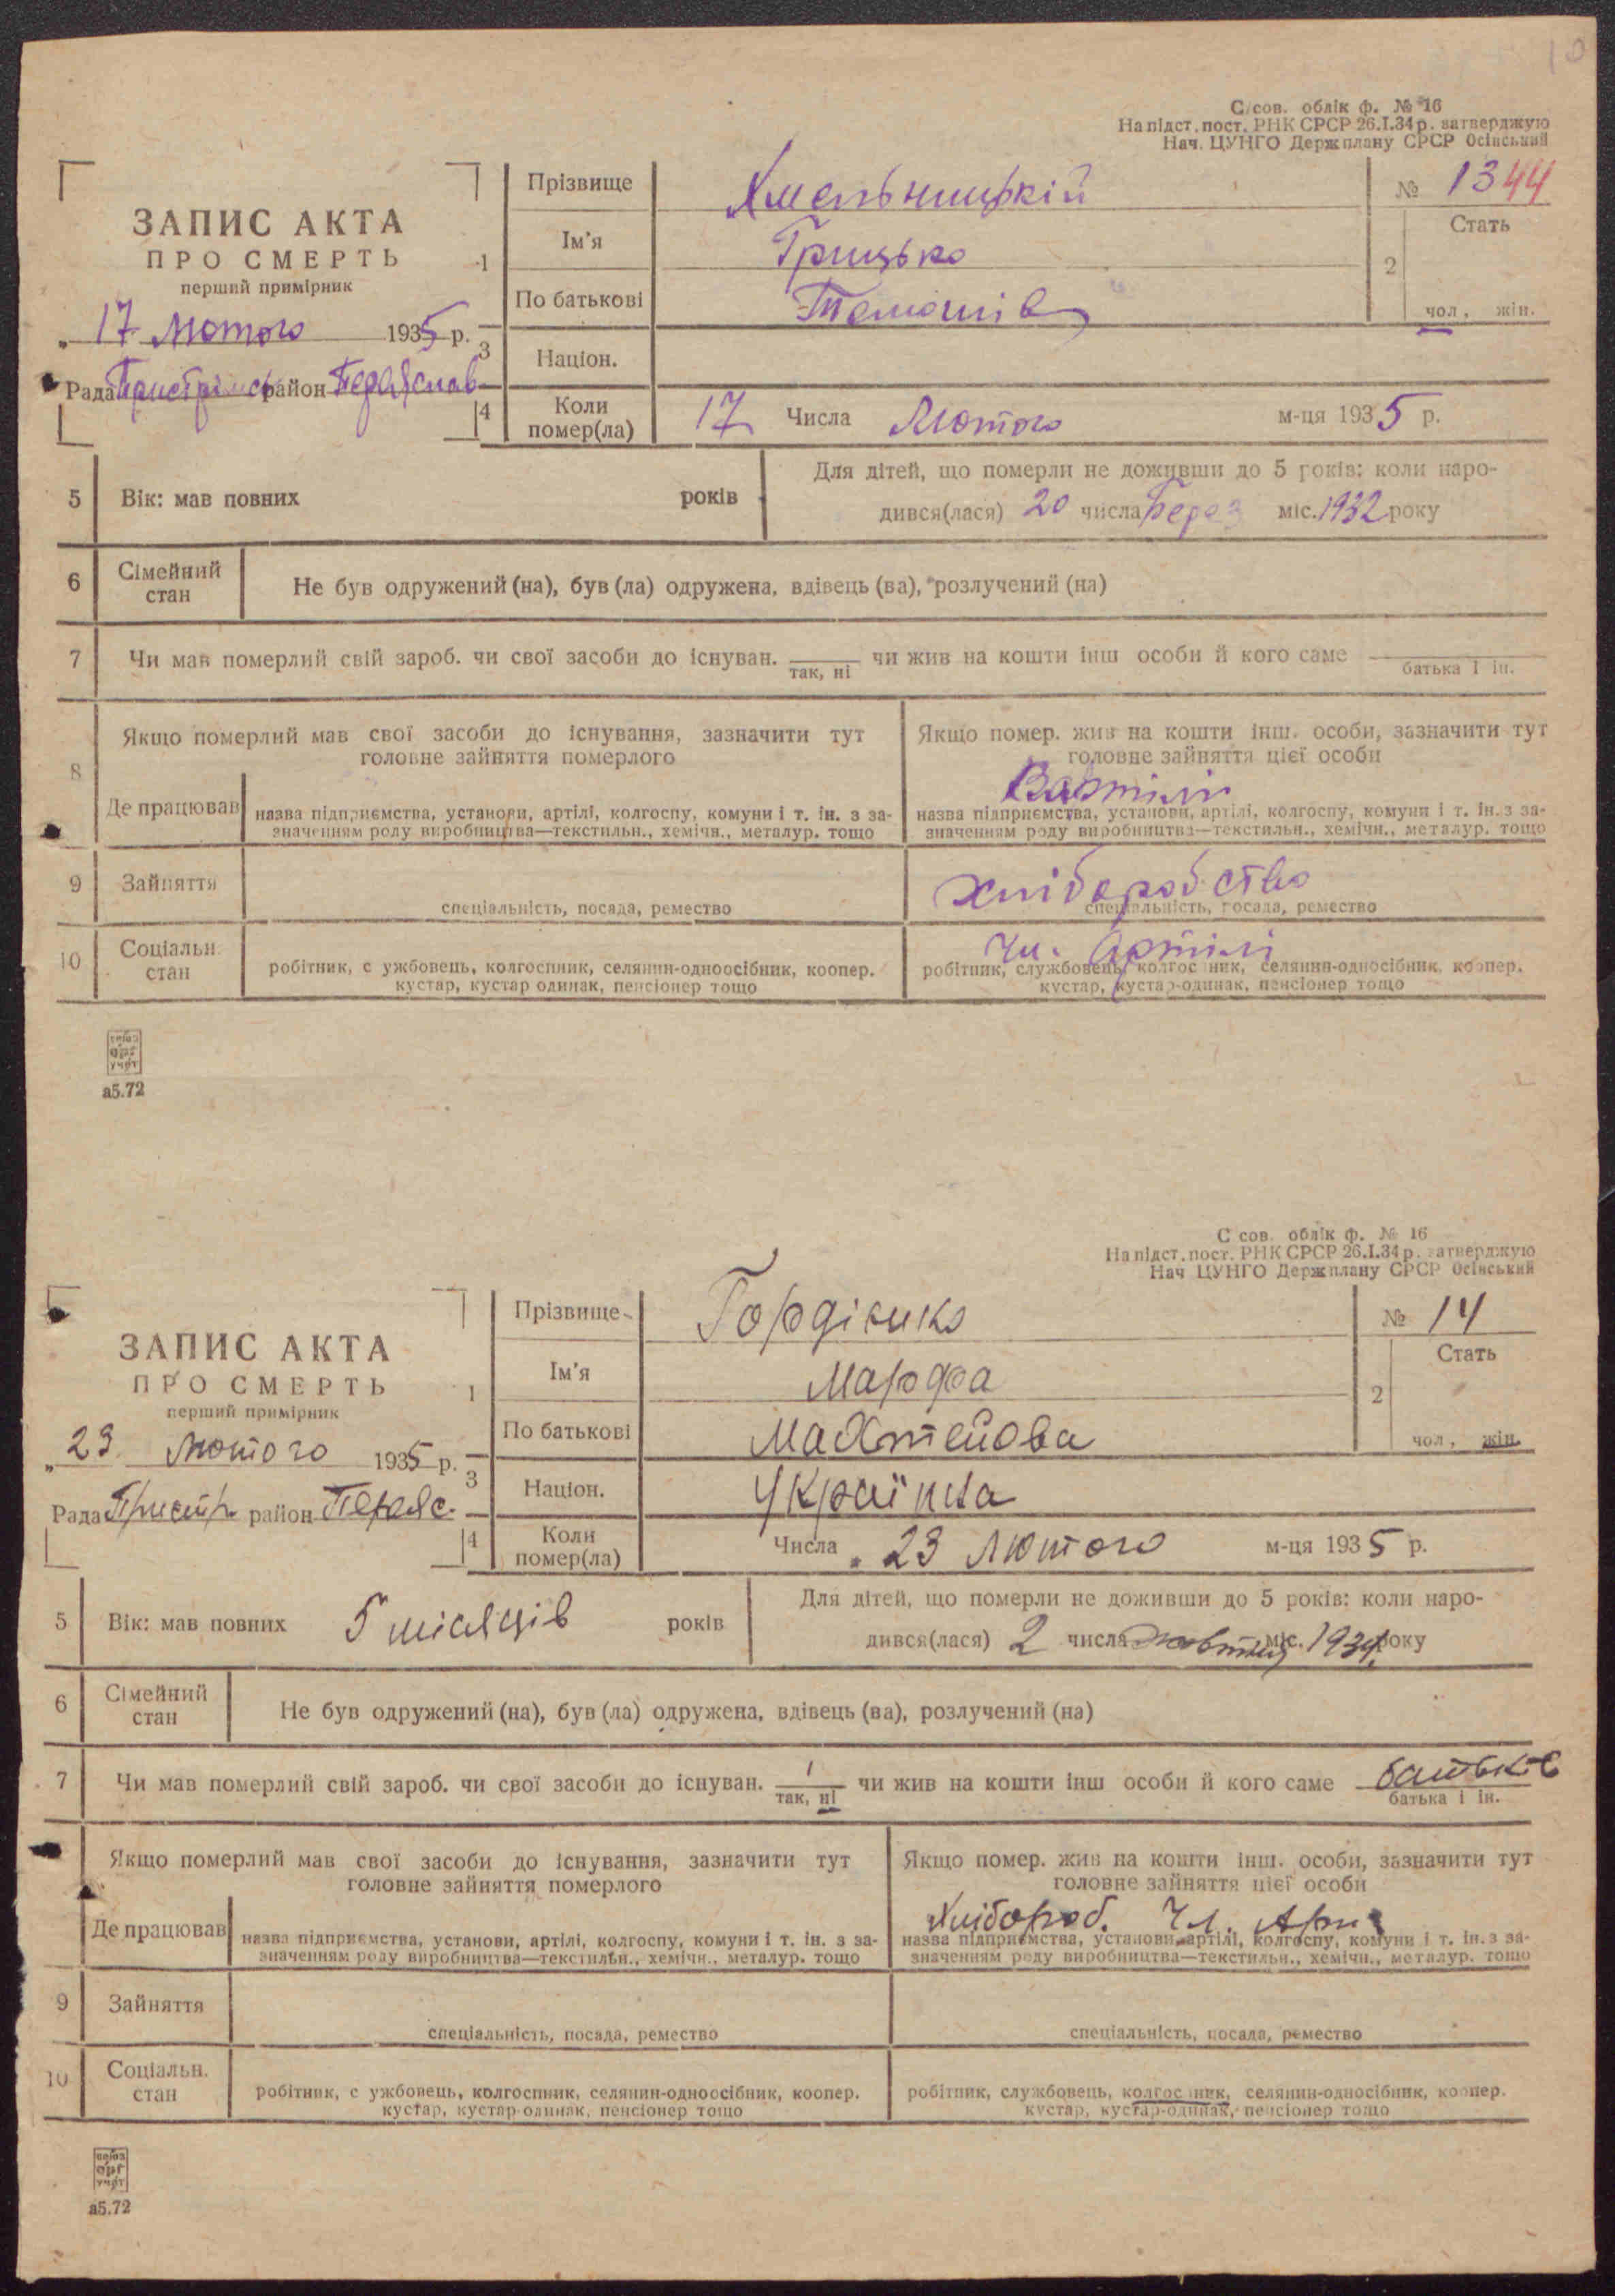 С/сов. облік ф. № 16
На підст. пост. РНК СРСР 26.I.34 р. затверджую
Нач. ЦУНГО Держплану СРСР Осінський
ЗАПИС АКТА
ПРО СМЕРТЬ
перший примірник
„ 17 Лютого 1935 р.
Рада район
1 Прізвище Хмельницкій
Ім'я Грицько
По батькові
№ 1344
2 Стать
чол, жін.
3 Націон.
4 Коли помер(ла) 17 Числа Лютого м-ця 1935 р.
5 Вік: мав повних років
Для дітей, що померли не доживши до 5 років: коли наро-
дився(лася) 20 числа Берез міс. 1932 року
6 Сімейний стан Не був одружений (на), був (ла) одружена, вдівець (ва), розлучений (на)
7 Чи мав померлий свій зароб. чи свої засоби до існуван. чи жив на кошти інш особи й кого саме
так, ні батька і ін.
8 Якщо померлий мав свої засоби до існування, зазначити тут
головне зайняття померлого
Якщо помер. жив на кошти інш. особи, зазначити тут
головне зайняття цієї особи
Вартілі
Де працював назва підприємства, установи, артілі, колгоспу, комуни і т. ін. з за-
значенням роду виробництва—текстильн., хемічн., металур. тощо
назва підприємства, установи, артілі, колгоспу, комуни і т. ін. з за-
значенням роду виробництва—текстильн., хемічн., металур. тощо
9 Зайняття хліборобство
спеціальність, посада, ремество
спеціальність, посада, ремество
10 Соціальн. стан Чл. Артілі
робітник, с ужбовець, колгоспник, селянин-одноосібник, коопер.
кустар, кустар одинак, пенсіонер тощо
робітник, службовець, колгос ник, селянин-односібник, коопер.
кустар, кустар-одинак, пенсіонер тощо
союз
орг
учёт
а5.72
С сов. облік ф. № 16
На підст. пост. РНК СРСР 26.I.34 р. затверджую
Нач ЦУНГО Держплану СРСР Осінський
ЗАПИС АКТА
ПРО СМЕРТЬ
перший примірник
„ 23 Лютого 1935 р.
Рада Пристр. район Переяс.
1 Прізвище Гордієнко
Ім'я Марфа
По батькові
№ 14
2 Стать
чол, жін.
3 Націон. Українка
4 Коли помер(ла) Числа 23 Лютого м-ця 1935 р.
5 Вік: мав повних 5 місяців років
Для дітей, що померли не доживши до 5 років: коли наро-
дився(лася) 2 числа жовтня міс. 1934 року
6 Сімейний стан Не був одружений (на), був (ла) одружена, вдівець (ва), розлучений (на)
7 Чи мав померлий свій зароб. чи свої засоби до існуван. чи жив на кошти інш особи й кого саме батьків
так, ні батька і ін.
Якщо померлий мав свої засоби до існування, зазначити тут
головне зайняття померлого
Якщо помер. жив на кошти інш. особи, зазначити тут
головне зайняття цієї особи
Хлібороб. Чл. Арт
Де працював назва підприємства, установи, артілі, колгоспу, комуни і т. ін. з за-
значенням роду виробництва—текстильн., хемічн., металур. тощо
назва підприємства, установи, артілі, колгоспу, комуни і т. ін. з за-
значенням роду виробництва—текстильн., хемічн., металур. тощо
9 Зайняття
спеціальність, посада, ремество
спеціальність, посада, ремество
10 Соціальн. стан
робітник, с ужбовець, колгоспник, селянин-одноосібник, коопер.
кустар, кустар-одинак, пенсіонер тощо
робітник, службовець, колгос ник, селянин-односібник, коопер.
кустар, кустар-одинак, пенсіонер тощо
союз
орг
учёт
а5.72